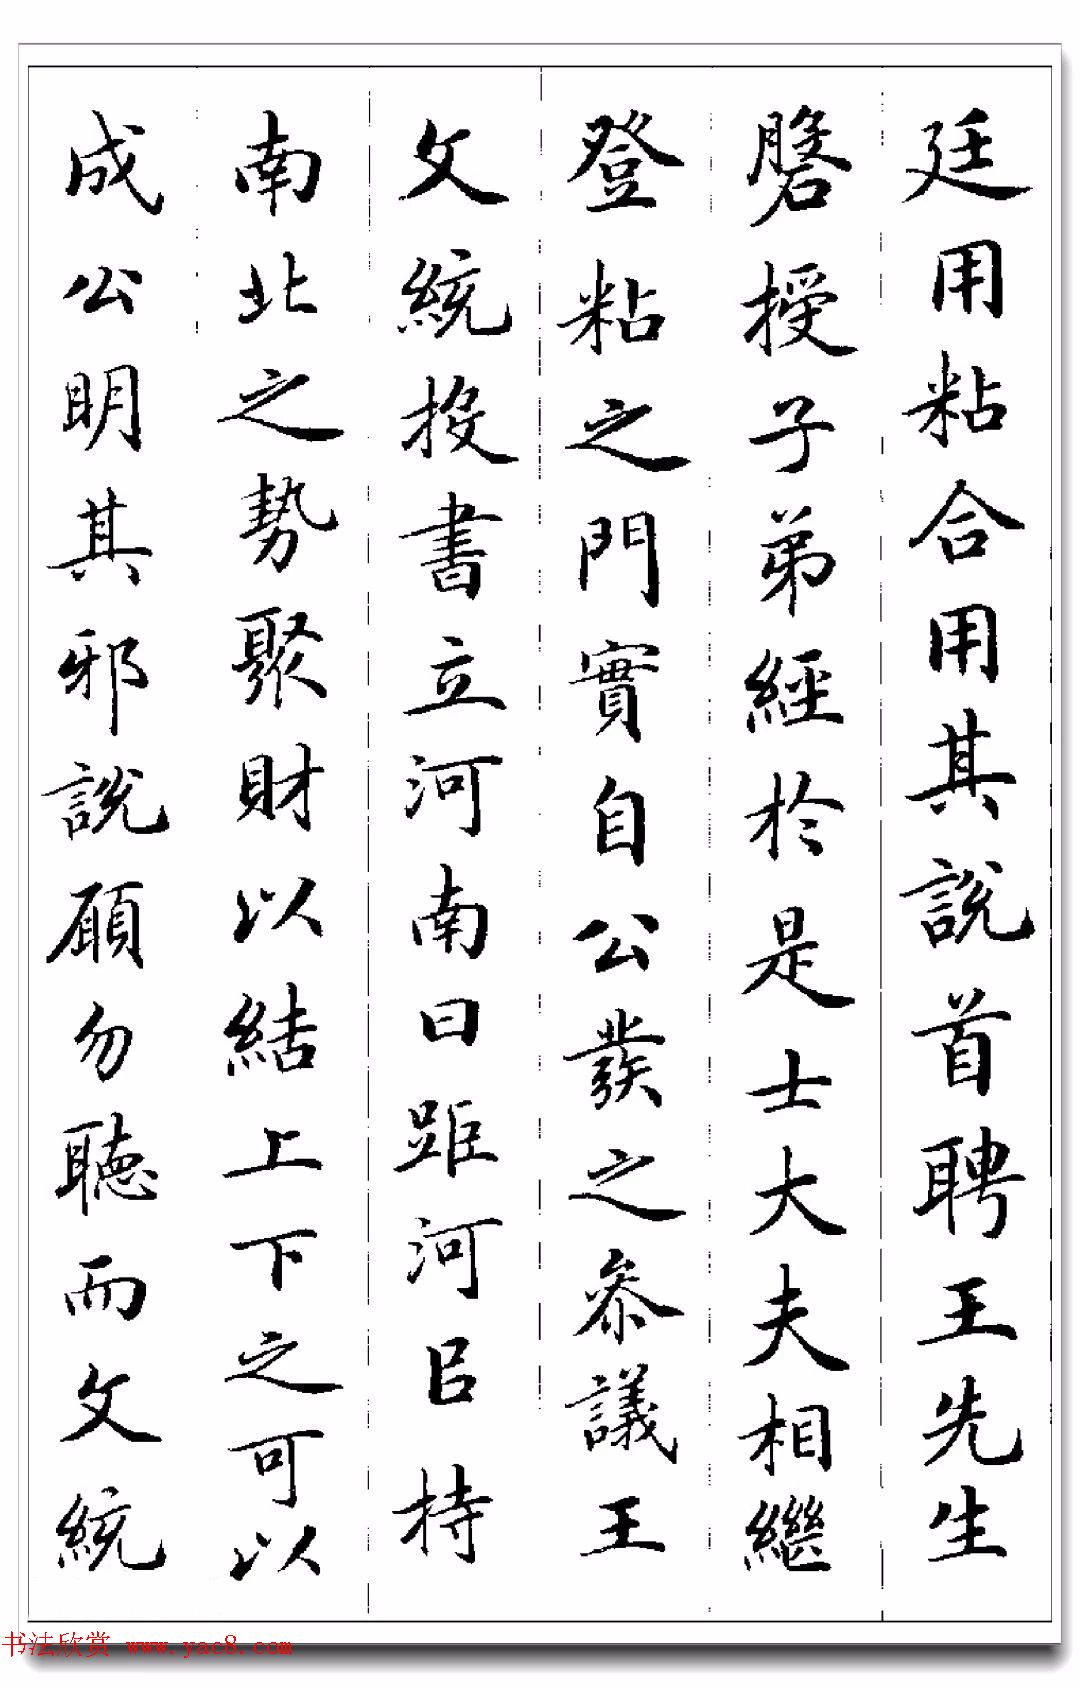 廷用粘合用其說首聘王先生
膺授子弟經於是士大夫相繼
登粘之門實自公發之參議王
文統投書立河南曰距河以持
南北之勢聚財以結上下之可以
成公明其邪說願勿聽而文統
书法欣赏 www.yac8.com